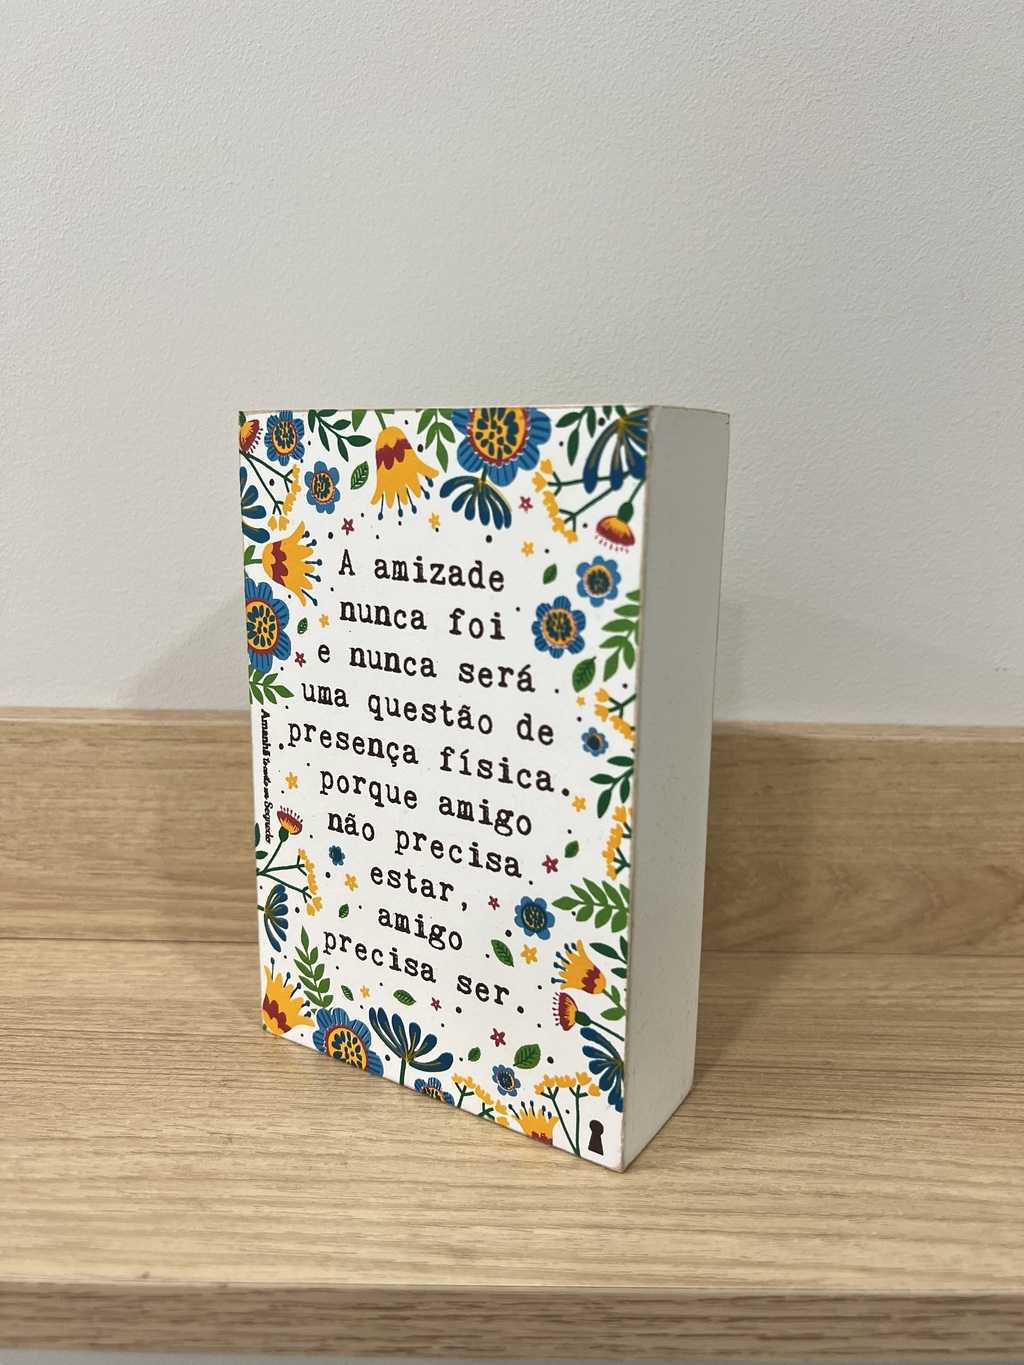 A amizade
nunca foi
e nunca será
uma questão de
presença física.
porque amigo
não precisa
estar,
amigo
precisa ser.
Amanhã Segredo